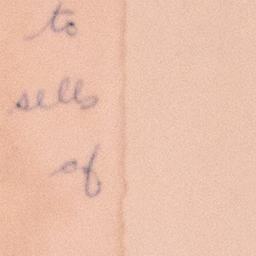 to
sells
of